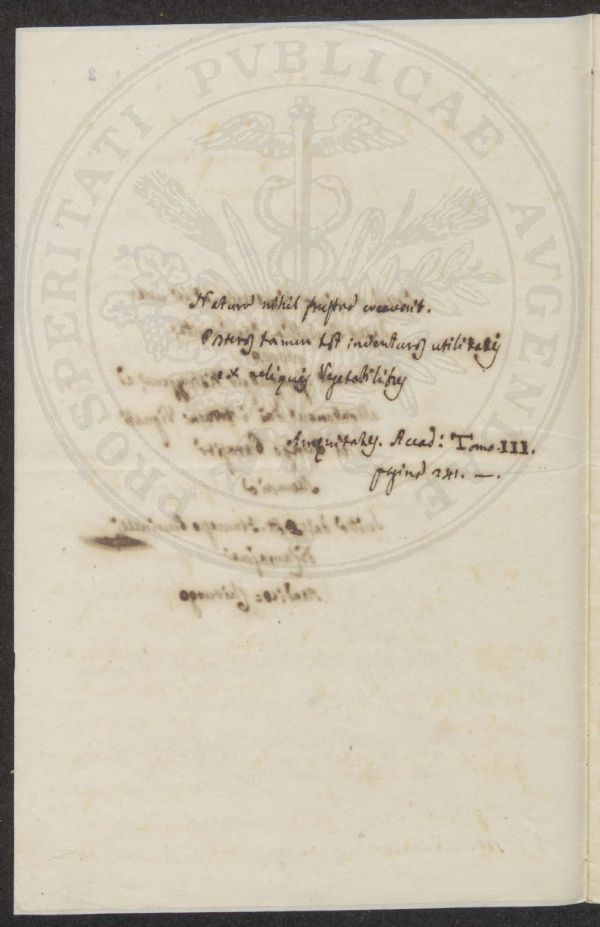 PROSPERITATI PVBLICAE AVGENDAE
2
Natura nihil frustra creavit.
Posteros tamen tot inventuros utilitates
ex reliquis Vegetabilibus
Amoenitates. Accad: Tomo III.
pagina